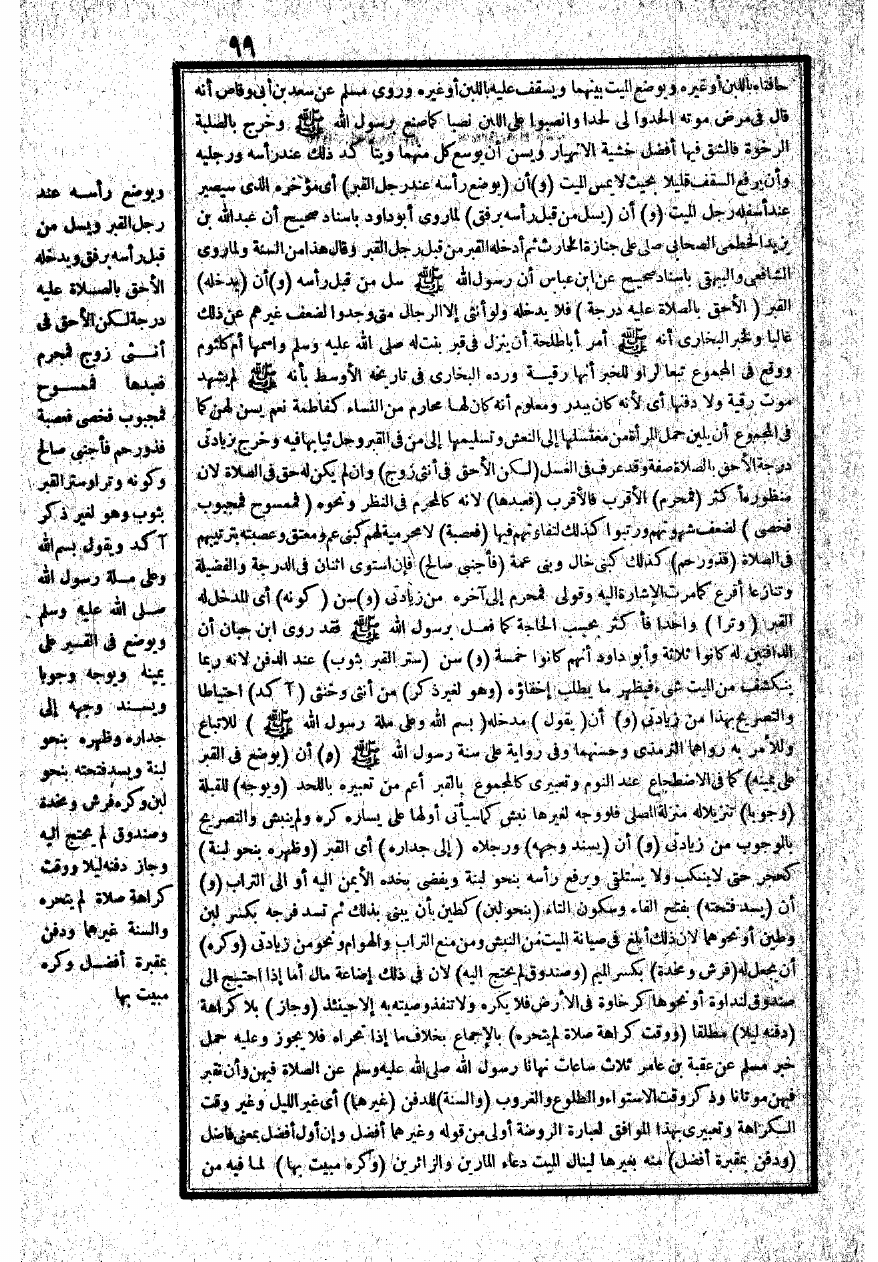 ٩٩
حافتاه باللبن أو غيره ويوضع الميت بينهما ويسقف عليه باللبن أو غيره وروى مسلم عن سعد بن أبى وقاص أنه
قال فى مرض موته الحدوا لى لحدا وانصبوا على اللبن نصبا كما صنع برسول الله ﷺ وخرج بالصلبة
الرخوة فالشق فيها أفضل خشية الانهيار ويسن أن يوسع كل منهما ويتأكد ذلك عند رأسه ورجليه
وأن يرفع السقف قليلا بحيث لا يمس الميت (و) أن (يوضع رأسه عند رجل القبر) أى مؤخره الذى سيصير
عند أسفله رجل الميت (و) أن (يسل من قبل رأسه برفق) لما روى أبو داود باسناد صحيح أن عبد الله بن
يزيد الخطمى الصحابى صلى على جنازة الحارث ثم أدخله القبر من قبل رجل القبر وقال هذا من السنة ولما روى
الشافعى والبيهقى باسناد صحيح عن ابن عباس أن رسول الله ﷺ سل من قبل رأسه (و) أن (يدخله)
القبر (الأحق بالصلاة عليه درجة) فلا يدخله ولو أنثى إلا الرجال متى وجدوا لضعف غيرهم عن ذلك
غالبا ولخبر البخارى أنه ﷺ أمر أبا طلحة أن ينزل فى قبر بنت له صلى الله عليه وسلم واسمها أم كلثوم
ووقع فى المجموع تبعا لراو للخبر أنها رقية ورده البخارى فى تاريخه الأوسط بأنه ﷺ لم يشهد
موت رقية ولا دفنها أى لأنه كان ببدر ومعلوم أنه كان لها محارم من النساء كفاطمة نعم يسن لهن كما
فى المجموع أن يلين حمل المرأة من مغتسلها إلى النعش وتسليمها إلى من فى القبر وحل ثيابها فيه وخرج بزيادتى
درجة الأحق بالصلاة صفة وقد عرف فى الغسل (لكن الأحق فى أنثى زوج) وان لم يكن له حق فى الصلاة لان
منظوره أكثر (فمحرم) الأقرب فالأقرب (فعبدها) لانه كالمحرم فى النظر ونحوه (فممسوح فمجبوب
فخصى) لضعف شهوتهم ورتبوا كذلك لتفاوتهم فيها (فعصبة) لا محرمية لهم كبنى عم ومعتق وعصبته بترتيبهم
فى الصلاة (فذو رحم) كذلك كبنى خال وبنى عمة (فأجنبى صالح) فإن استوى اثنان فى الدرجة والفضيلة
وتنازعا أقرع كما مرت الإشارة اليه وقولى فمحرم إلى آخره من زيادتى (و) سن (كونه) أى المدخل له
القبر (وترا) واحدا فأكثر بحسب الحاجة كما فعل برسول الله ﷺ فقد روى ابن حبان أن
الدافنين له كانوا ثلاثة وأبو داود أنهم كانوا خمسة (و) سن (ستر القبر بثوب) عند الدفن لانه ربما
ينكشف من الميت شىء فيظهر ما يطلب إخفاؤه (وهو لغير ذكر) من أنثى وخنثى (آكد) احتياطا
والتصريح بهذا من زيادتى (و) أن (يقول) مدخله (بسم الله وعلى ملة رسول الله ﷺ) للاتباع
وللأمر به رواهما الترمذى وحسنهما وفى رواية على سنة رسول الله ﷺ (و) أن (يوضع فى القبر
على يمينه) كما فى الاضطجاع عند النوم وتعبيرى كالمجموع بالقبر أعم من تعبيره باللحد (ويوجه) للقبلة
(وجوبا) تنزيلا له منزلة المصلى فلو وجه لغيرها نبش كما سيأتى أولها على يساره كره ولم ينبش والتصريح
بالوجوب من زيادتى (و) أن (يسند وجهه) ورجلاه (إلى جداره) أى القبر (وظهره بنحو لبنة)
كحجر حتى لا ينكب ولا يستلقى ويرفع رأسه بنحو لبنة ويفضى بخده الأيمن اليه أو الى التراب (و)
أن (يسد فتحته) بفتح الفاء وسكون التاء (بنحو لبن) كطين بأن يبنى بذلك ثم تسد فرجه بكسر لبن
وطين أو نحوهما لان ذلك أبلغ فى صيانة الميت من النبش ومن منع التراب والهوام ونحو من زيادتى (وكره)
أن يجعل له (فرش ومخدة) بكسر الميم (وصندوق لم يحتج اليه) لان فى ذلك إضاعة مال أما إذا احتيج الى
صندوق لنداوة أو نحوها كرخاوة فى الأرض فلا يكره ولا تنفذ وصيته به إلا حينئذ (وجاز) بلا كراهة
(دفنه ليلا) مطلقا (ووقت كراهة صلاة لم يتحره) بالإجماع بخلاف ما إذا تحراه فلا يجوز وعليه حمل
خبر مسلم عن عقبة بن عامر ثلاث ساعات نهانا رسول الله صلى الله عليه وسلم عن الصلاة فيهن وأن نقبر
فيهن موتانا وذكر وقت الاستواء والطلوع والغروب (والسنة) للدفن (غيرهما) أى غير الليل وغير وقت
الكراهة وتعبيرى بهذا الموافق لعبارة الروضة أولى من قوله وغيرهما أفضل وإن أول أفضل بمعنى فاضل
(ودفن بمقبرة أفضل) منه بغيرها لينال الميت دعاء المارين والزائرين (وكره مبيت بها) لما فيه من
ويوضع رأسه عند
رجل القبر ويسل من
قبل رأسه برفق ويدخله
الأحق بالصلاة عليه
درجة لكن الأحق فى
أنثى زوج فمحرم
فعبدها فممسوح
فمجبوب فخصى فعصبة
فذو رحم فأجنبى صالح
وكونه وترا وستر القبر
بثوب وهو لغير ذكر
آكد ويقول بسم الله
وعلى ملة رسول الله
صلى الله عليه وسلم
ويوضع فى القبر على
يمينه ويوجه وجوبا
ويسند وجهه إلى
جداره وظهره بنحو
لبنة ويسد فتحته بنحو
لبن وكره فرش ومخدة
وصندوق لم يحتج اليه
وجاز دفنه ليلا ووقت
كراهة صلاة لم يتحره
والسنة غيرهما ودفن
بمقبرة أفضل وكره
مبيت بها